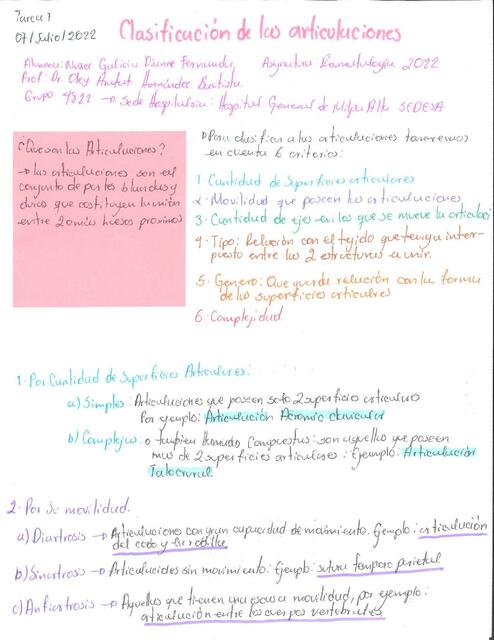 Tarea 1
07/Julio/2022
Clasificación de las articulaciones
Alumna: Nuñez Galicia Dianne Fernanda
Asignatura: Reumatología 2022
Prof: Dr. Hernández Bautista.
Grupo 4821 → Sede Hospitalaria: Hospital General de Milpa Alta SEDESA
¿Que son las Articulaciones?
→ las articulaciones son el
conjunto de partes blandas y
duras que constituyen la unión
entre 2 o más huesos proximos
→ Para clasificar a las articulaciones tomaremos
en cuenta 6 criterios:
1. Cantidad de Superficies articulares
2. Movilidad que poseen las articulaciones
3. Cantidad de ejes en los que se mueve la articulació
4. Tipo: Relación con el tejido que tenga inter-
puesto entre las 2 estructuras a unir.
5. Genero: Que guarda relación con la forma
de las superficies articulares
6. Complejidad.
1. Por Cantidad de Superficies Articulares:
a) Simples: Articulaciones que poseen solo 2 superficies articulares
Por ejemplo: Articulación Acromio clavicular
b) Complejas: o tambien llamadas Compuestas: son aquellas que poseen
mas de 2 superficies articulares: Ejemplo: Articulación
Talocrural.
2. Por su movilidad.
a) Diartrosis → Articulaciones con gran capacidad de movimiento. Ejemplo: articulación
del codo y la rodilla
b) Sinartrosis → Articulaciones sin movimiento: Ejemplo: sutura temporo parietal
c) Anfiartrosis → Aquellas que tienen una escasa movilidad, por ejemplo:
articulación entre los cuerpos vertebrales